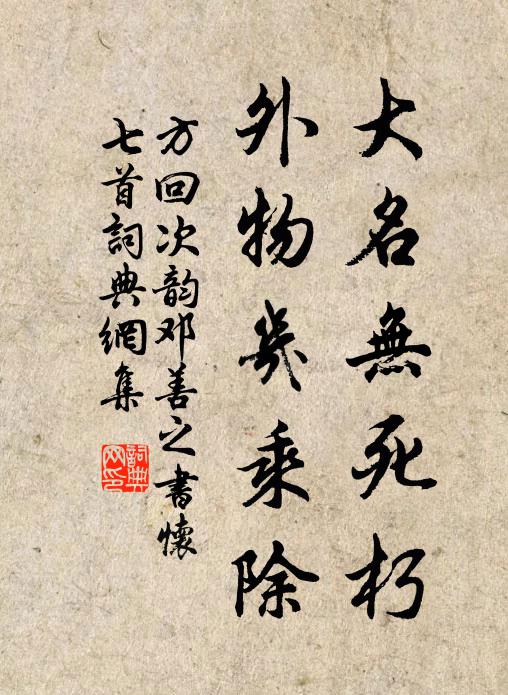 大名無死朽
外物幾乘除
方回次韵邓善之書懷
七首詞典網集
詞典網印